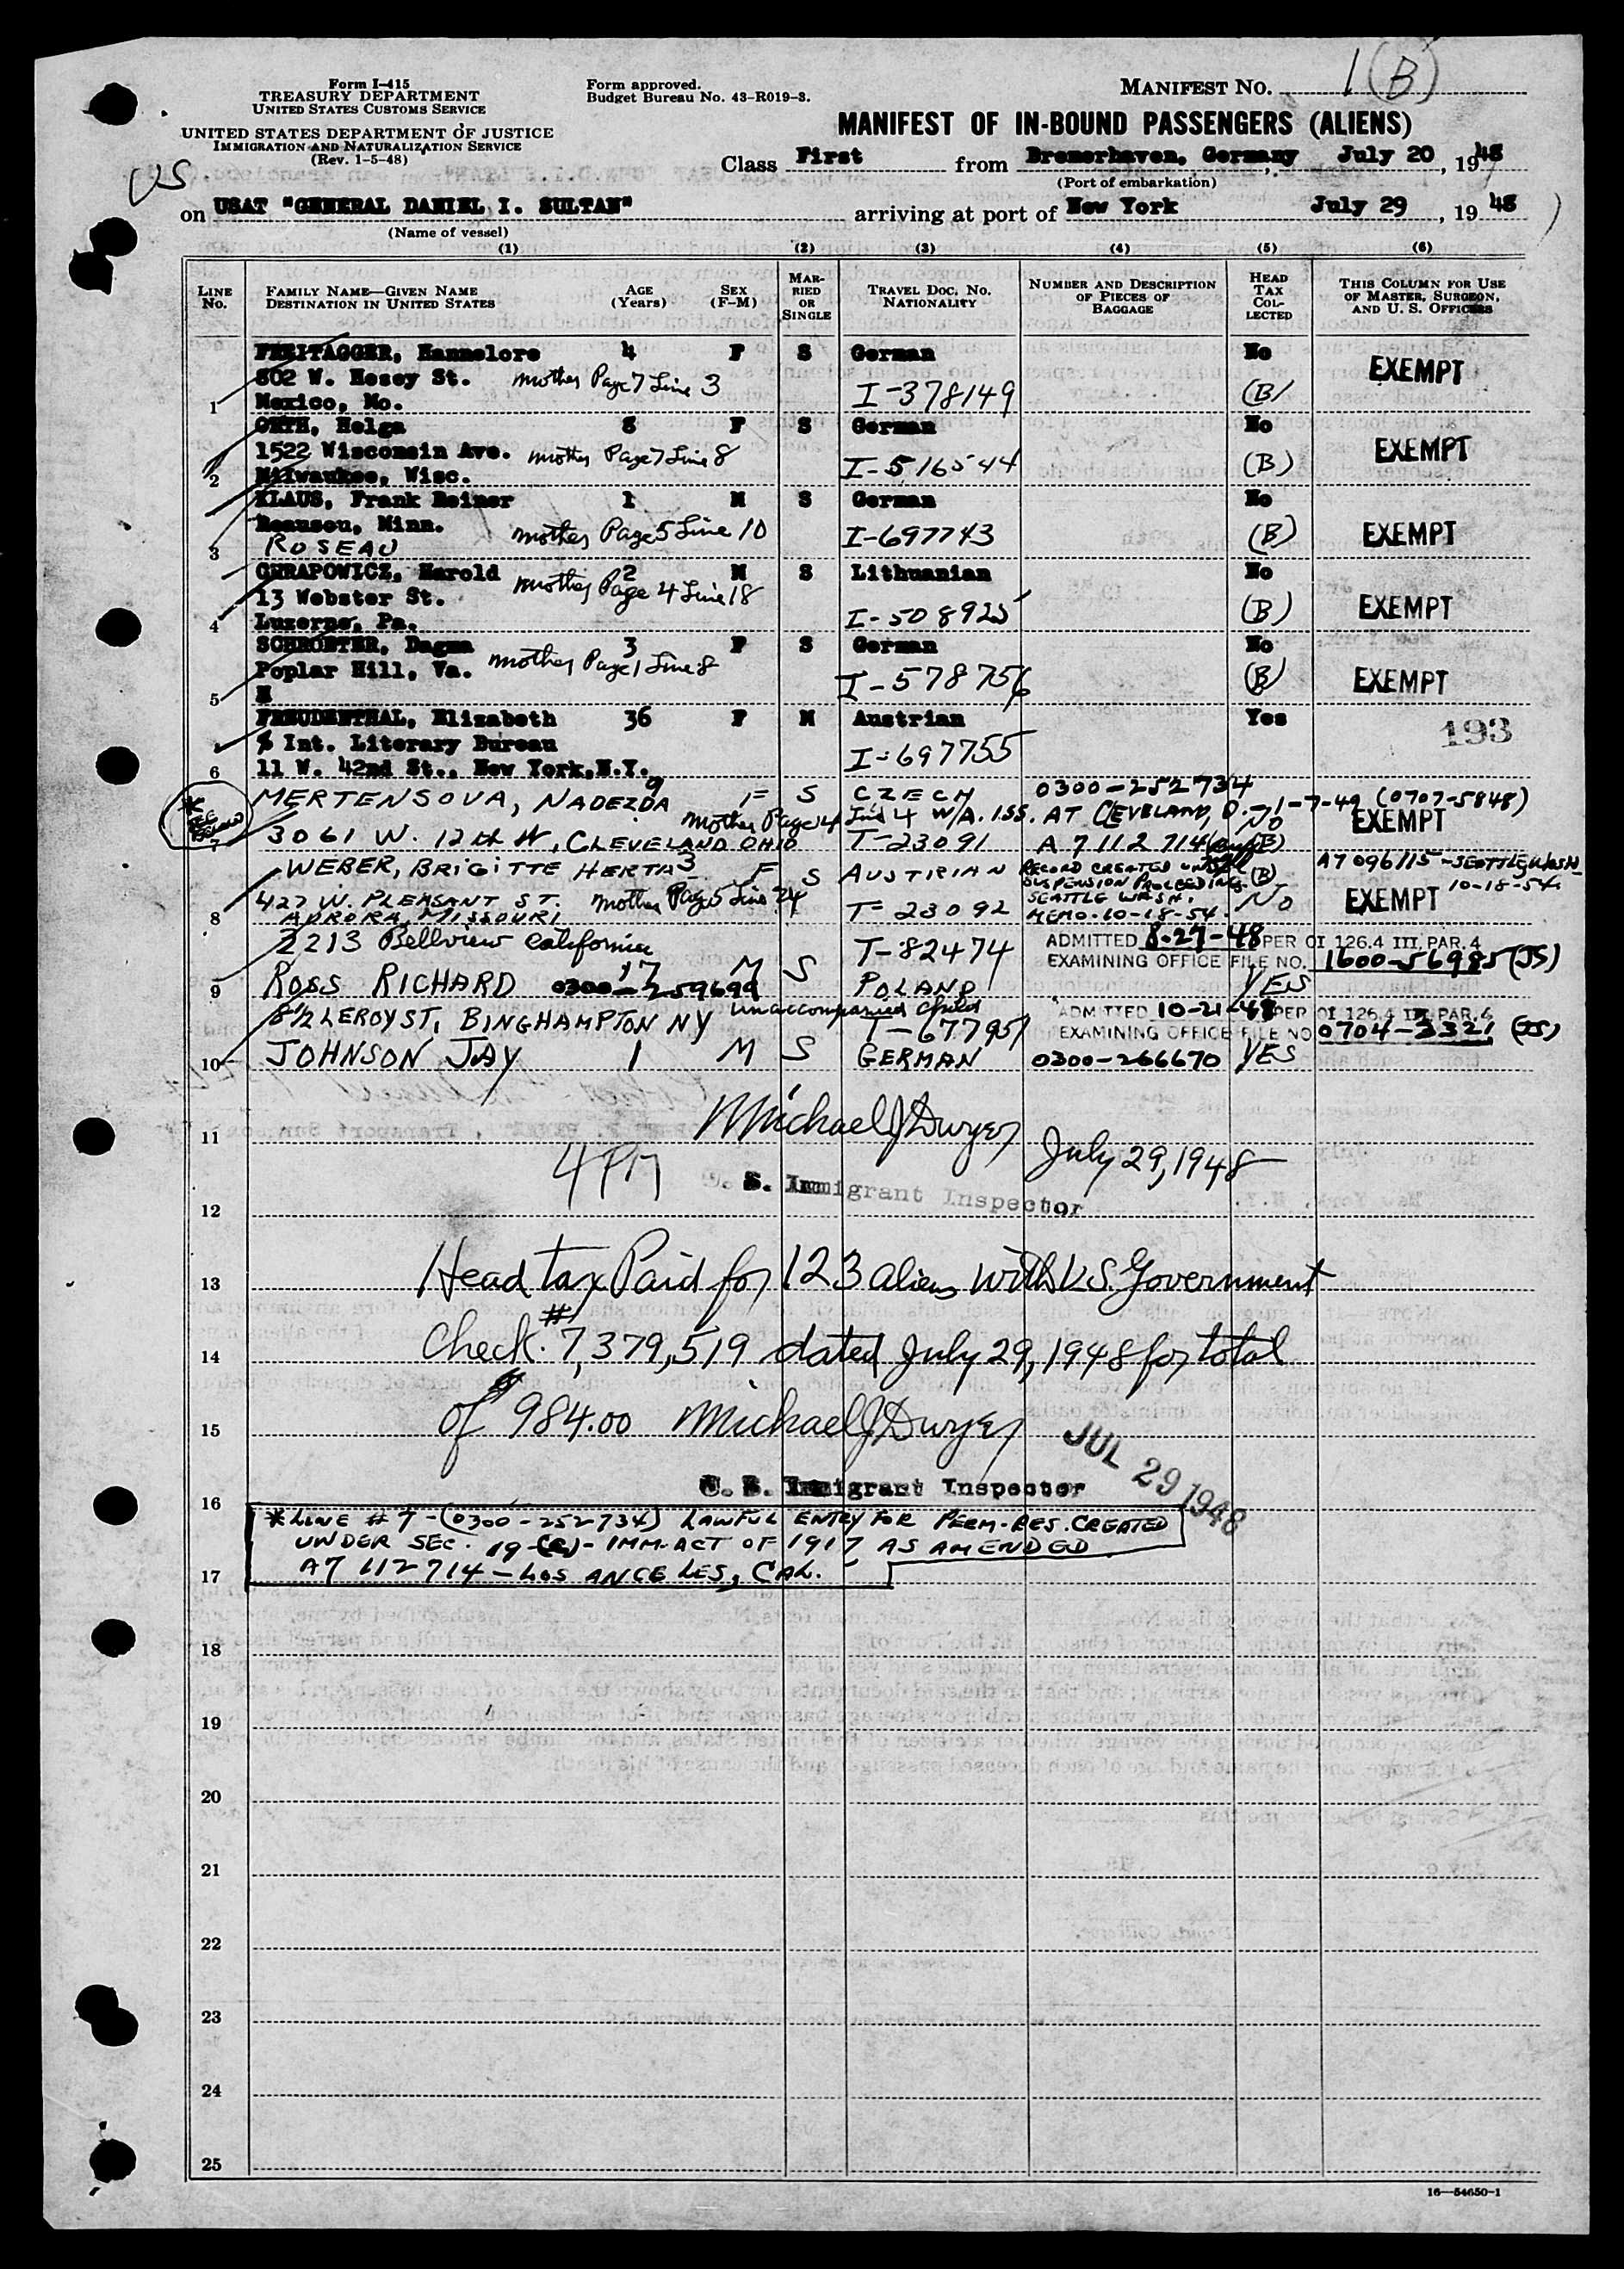 Form I-415
TREASURY DEPARTMENT
UNITED STATES CUSTOMS SERVICE
UNITED STATES DEPARTMENT OF JUSTICE
IMMIGRATION AND NATURALIZATION SERVICE
(Rev. 1-5-48)
Form approved.
Budget Bureau No. 43-R019-3.
MANIFEST NO. 1 (B)
MANIFEST OF IN-BOUND PASSENGERS (ALIENS)
Class First from Bremerhaven, Germany, July 20, 1948
(Port of embarkation)
US
on USAT "GENERAL DANIEL I. SULTAN" arriving at port of New York July 29, 1948
(Name of vessel)
(1) (2) (3) (4) (5) (6)
LINE No.
FAMILY NAME—GIVEN NAME DESTINATION IN UNITED STATES
AGE (Years)
SEX (F-M)
MARRIED OR SINGLE
TRAVEL DOC. NO. NATIONALITY
NUMBER AND DESCRIPTION OF PIECES OF BAGGAGE
HEAD TAX COLLECTED
THIS COLUMN FOR USE OF MASTER, SURGEON, AND U. S. OFFICERS
FREITAGGER, Hannelore 4 F S German No
802 W. Hosey St. mother Page 7 Line 3 I-378149 (B) EXEMPT
1 Mexico, Mo.
ORTH, Helga 8 F S German No
1522 Wisconsin Ave. mother Page 7 Line 8 I-516544 (B) EXEMPT
2 Milwaukee, Wisc.
KLAUS, Frank Reiner 1 M S German No
Reausou, Minn. mother Page 5 Line 10 I-697743 (B) EXEMPT
3 ROSEAU
GHRAPOWICZ, Harold 2 M S Lithuanian No
13 Webster St. mother Page 4 Line 18 I-508925 (B) EXEMPT
4 Luzerne, Pa.
SCHROETER, Dagma 3 F S German No
Poplar Hill, Va. mother Page 1 Line 8 I-578756 (B) EXEMPT
5 M
FREUDENTHAL, Elizabeth 36 F M Austrian Yes
% Int. Literary Bureau I-697755 193
6 11 W. 42nd St., New York, N.Y.
* SEE BELOW
MERTENSOVA, NADEZDA 9 F S CZECH 0300-252734
mother Page 14 Line 4 W/A. ISS. AT CLEVELAND, O.-1-7-49 (0707-5848)
7 3061 W. 12th St, CLEVELAND OHIO T-23091 A7112714 No (B) EXEMPT
WEBER, BRIGITTE HERTA 3 F S AUSTRIAN RECORD CREATED UNDER (B) A7096115-SEATTLE, WASH
SUSPENSION PROCEEDING. 10-18-54
427 W. PLEASANT ST. mother Page 5 Line 24 SEATTLE WASH. No EXEMPT
8 AURORA, MISSOURI T-23092 MEMO. 10-18-54.
2213 Bellview California T-82474 ADMITTED 8-27-48 PER OI 126.4 III, PAR. 4
EXAMINING OFFICE FILE NO. 1600-56985 (JS)
9 ROSS RICHARD 0300-259699 17 M S POLAND YES
8½ LEROY ST, BINGHAMPTON NY unaccompanied child T-67795 ADMITTED 10-21-48 PER OI 126.4 III, PAR. 4
EXAMINING OFFICE FILE NO 0704-3321 (JS)
10 JOHNSON JAY 1 M S GERMAN 0300-266670 YES
Michael J Dwyer
11
4 PM July 29, 1948
U. S. Immigrant Inspector
12
13 Head tax Paid for 123 aliens with U.S. Government
14 Check. #7,379,519 dated July 29, 1948 for total
15 of $984.00 Michael J Dwyer
JUL 29 1948
U. S. Immigrant Inspector
16
* LINE #7-(0300-252734) LAWFUL ENTRY FOR PERM-RES. CREATED
UNDER SEC. 19-(c)-IMM-ACT OF 1917 AS AMENDED
17 A7 112714-LOS ANGELES, CAL.
18
19
20
21
22
23
24
25
16—54650-1